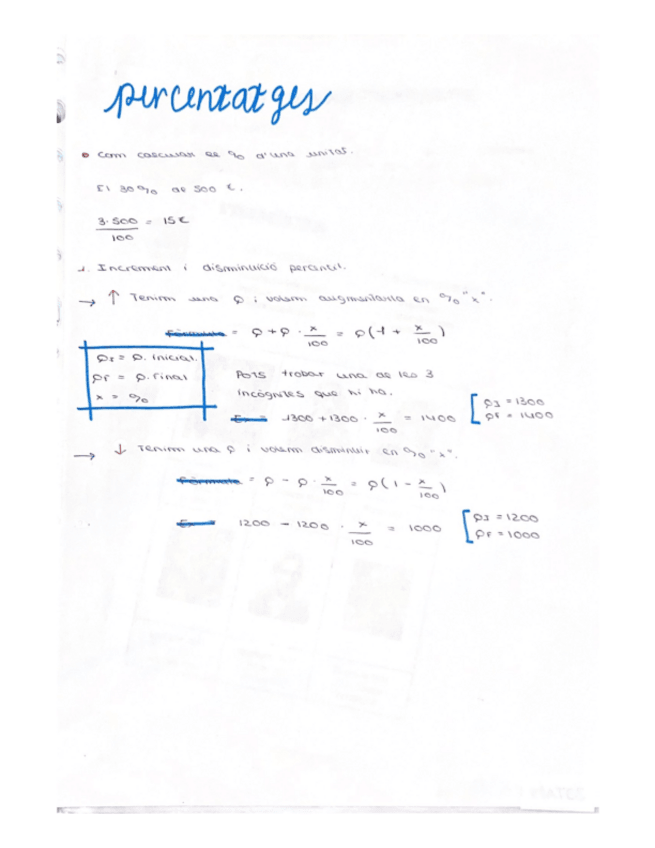 percentatges
• Com calcular el % d'una unitat.
El 30% de 500 €.
3·500/100 = 15€
1. Increment i disminució percentil.
→ ↑ Tenim una Q i volem augmentarla en % "x".
Fórmula = Q + Q · x/100 = Q(1 + x/100)
QI = Q. Inicial.
QF = Q. Final
x = %
Pots trobar una de les 3
incògnites que hi ha.
Ex = 1300 + 1300 · x/100 = 1400 [QI = 1300
QF = 1400
→ ↓ Tenim una Q i volem disminuir en % "x".
Fórmula = Q - Q · x/100 = Q(1 - x/100)
1200 - 1200 · x/100 = 1000 [QI = 1200
QF = 1000